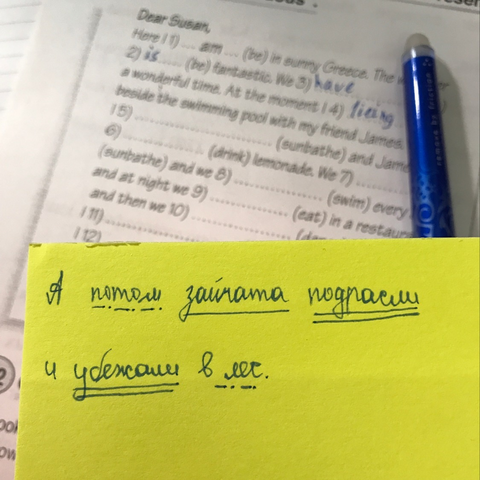 Dear Susan,
Here I 1) ... am ... (be) in sunny Greece. The
2) is ..... (be) fantastic. We 3) have
a wonderful time. At the moment I 4) lieing
beside the swimming pool with my friend James.
I 5) ........................ (sunbathe) and Jame
6) ........................ (drink) lemonade. We 7) ............
(sunbathe) and we 8) ........................ (swim) every
and at night we 9) ........................ (eat) in a restau
and then we 10) ........................
I 11) ........................
I 12)
А потом зайчата подрасли
и убежали в лес.